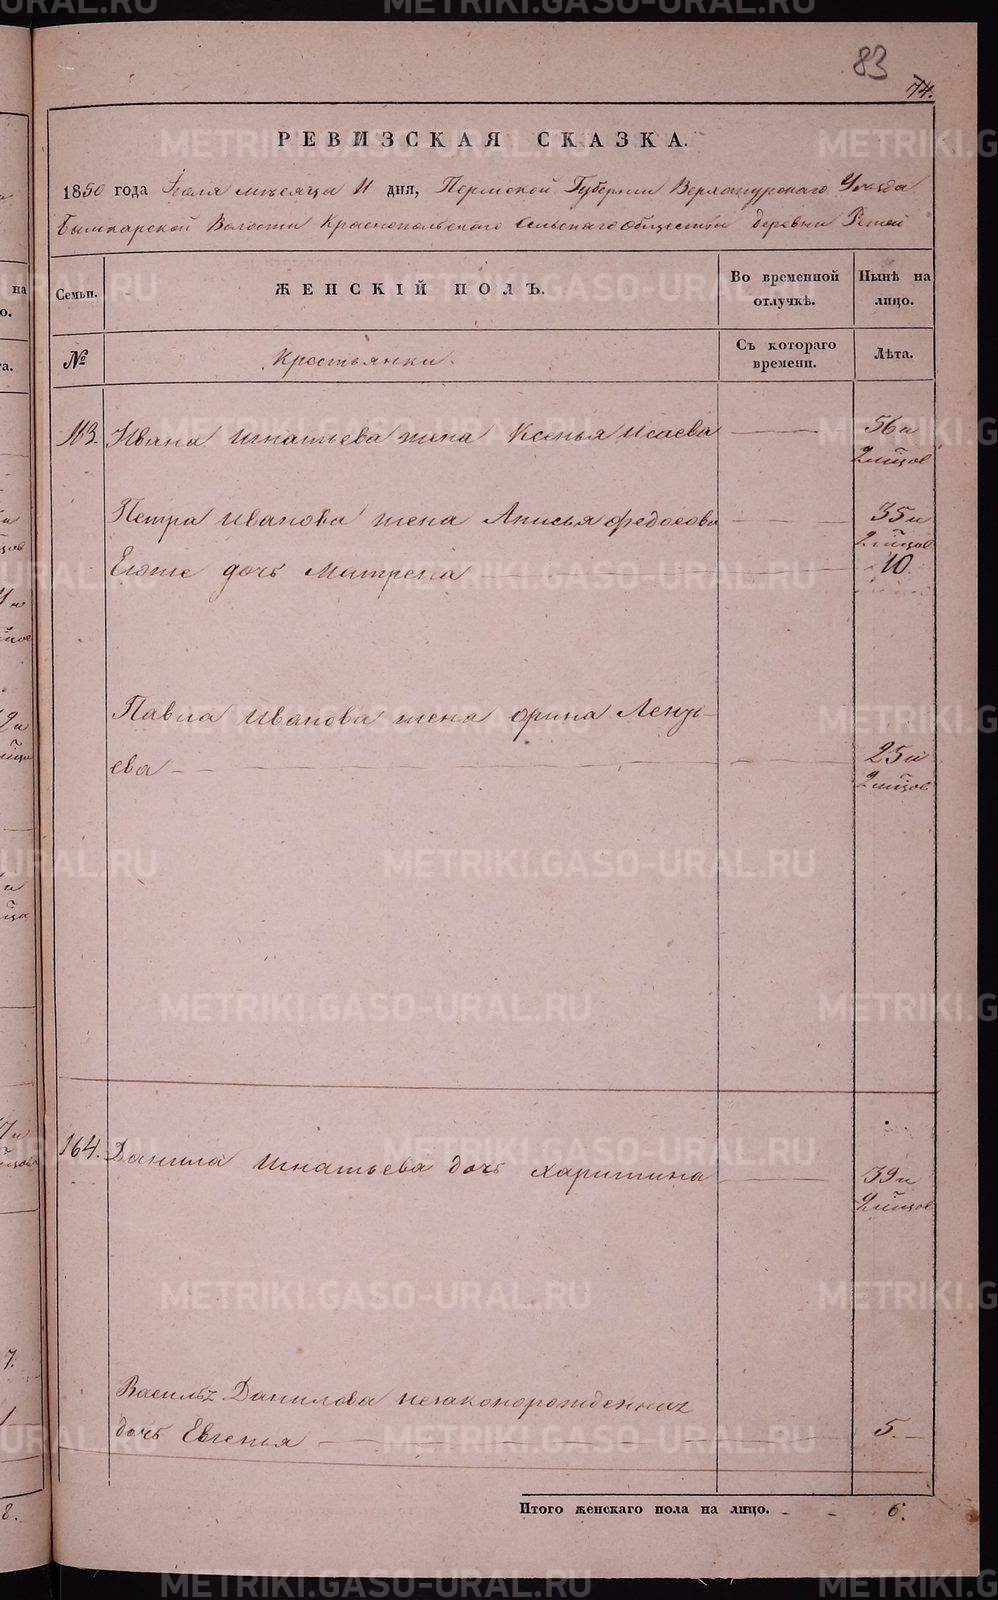 83
74.
РЕВИЗСКАЯ СКАЗКА.
1850 года Іюля мѣсяца 11 дня, Пермской Губерніи Верхотурскаго Уѣзда
Волости Краснопольскаго Сельскаго Общества деревни
Семьи.
ЖЕНСКІЙ ПОЛЪ.
Во временной отлучкѣ.
Нынѣ на лицо.
№
Крестьянки.
Съ котораго времени.
Лѣта.
163. Ивана Игнатьева жена Ксенья Исаева 56 и
2 мѣсцов
Петра Иванова жена Анисья Федосова 35 и
2 мѣсцов
Егоже дочь Матрена 10
Павла Иванова жена Орина
ева 25 и
2 мѣсцов
164. Данила Игнатьева дочь Харитина 39 и
2 мѣсцов
Данилова незаконорожденная
дочь Евгенья 5.
Итого женскаго пола на лицо. 6.
METRIKI.GASO-URAL.RU